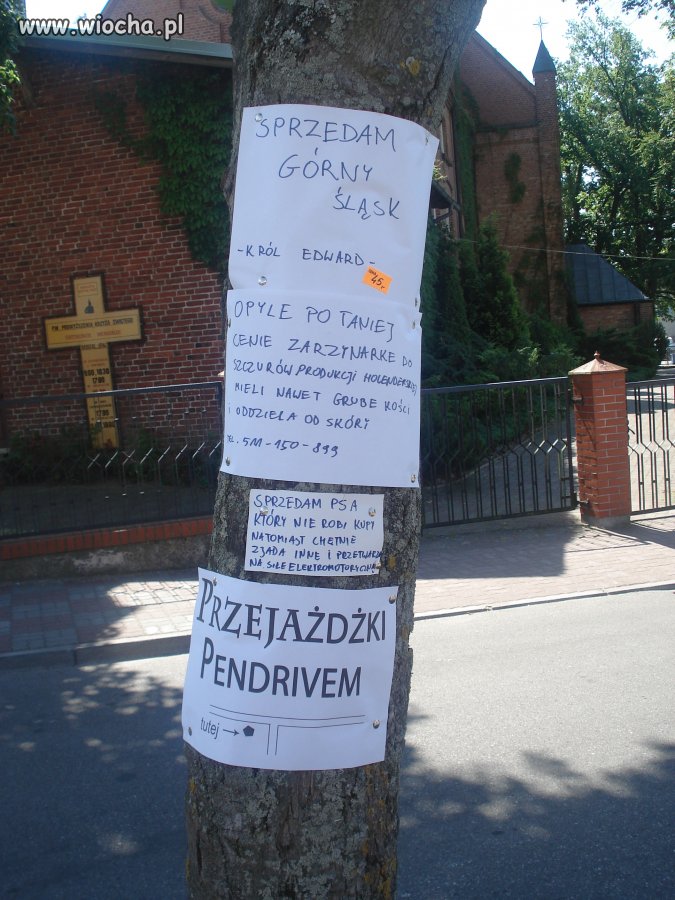 www.wiocha.pl
SPRZEDAM
GÓRNY
ŚLĄSK
-KRÓL EDWARD-
45,-
OPYLE PO TANIEJ
CENIE ZARZYNARKE DO
SZCZURÓW PRODUKCJI HOLENDERSKIEJ
MIELI NAWET GRUBE KOŚCI
I ODDZIELA OD SKÓRY
TEL. 5M-150-899
SPRZEDAM PSA
KTÓRY NIE ROBI KUPY
NATOMIAST CHĘTNIE
ZJADA INNE I PRZETWARZA
NA SIŁE ELEKTROMOTORYCZNĄ
PRZEJAŻDŻKI
PENDRIVEM
tutej →
P.W. PODWYŻSZENIA KRZYŻA ŚWIĘTEGO